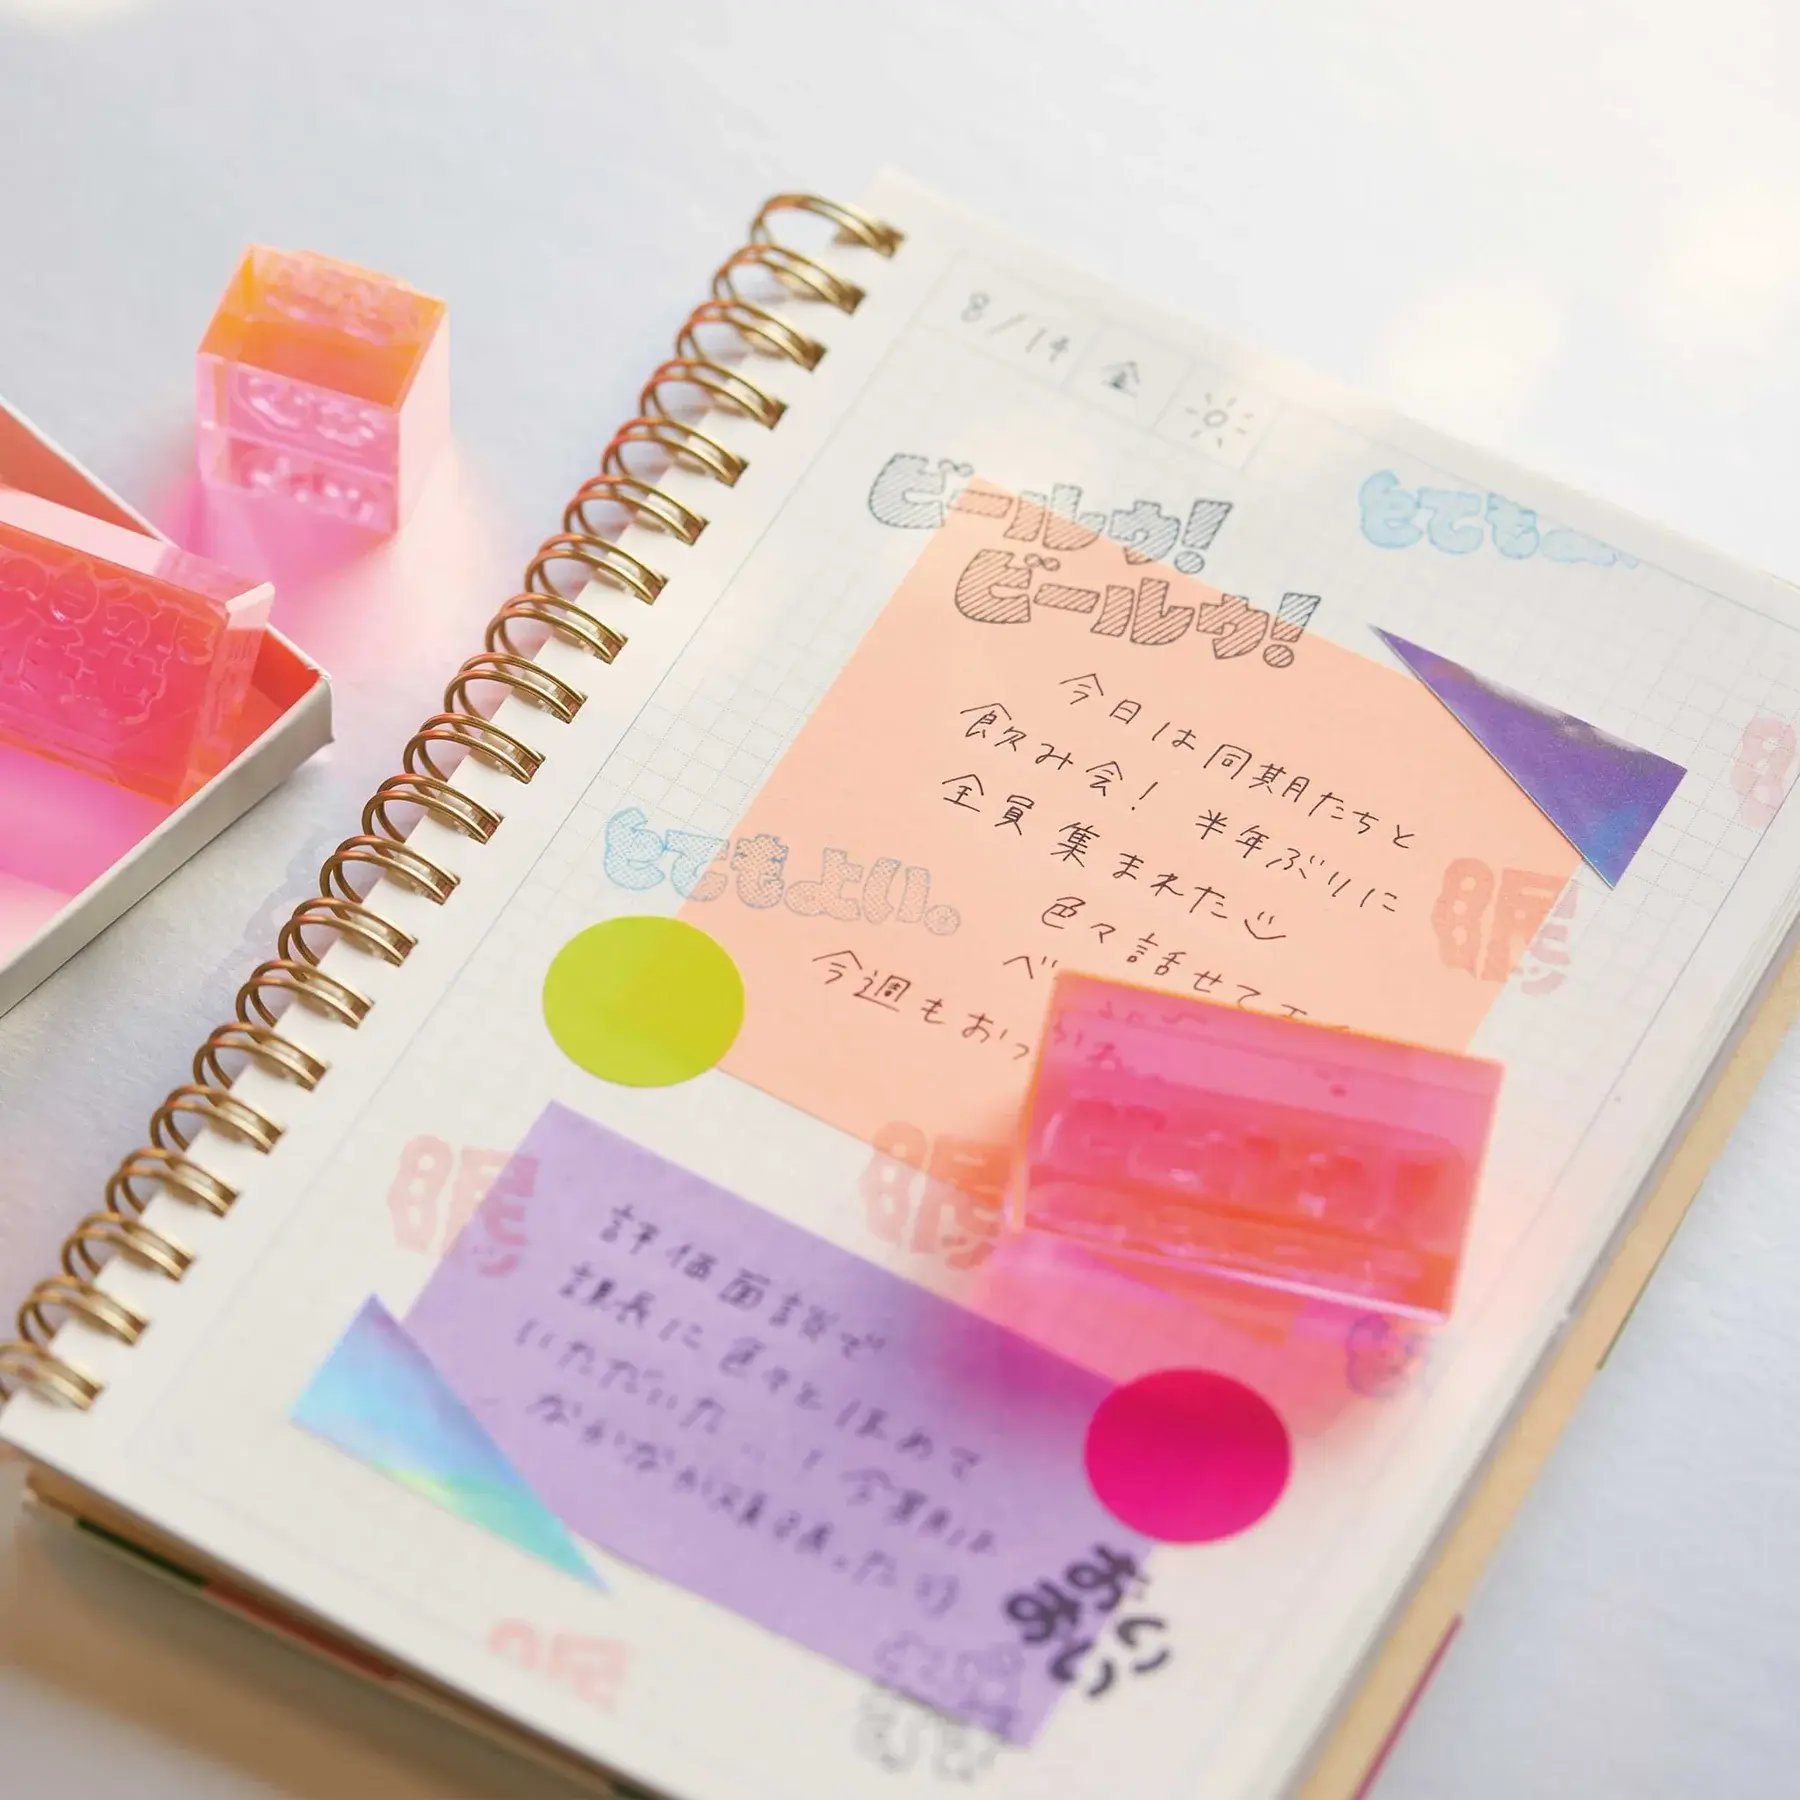 8/14 金
ビールゥ!
ビールゥ!
とても
今日は同期たちと
飲み会! 半年ぶりに
全員集まれた
色々話せて
今週もおつ
とてもよい。
眠
眠
眠
評価面談で
課長に色々とほめて
いただいた…! 今期は
なかなか頑張った
おいおい